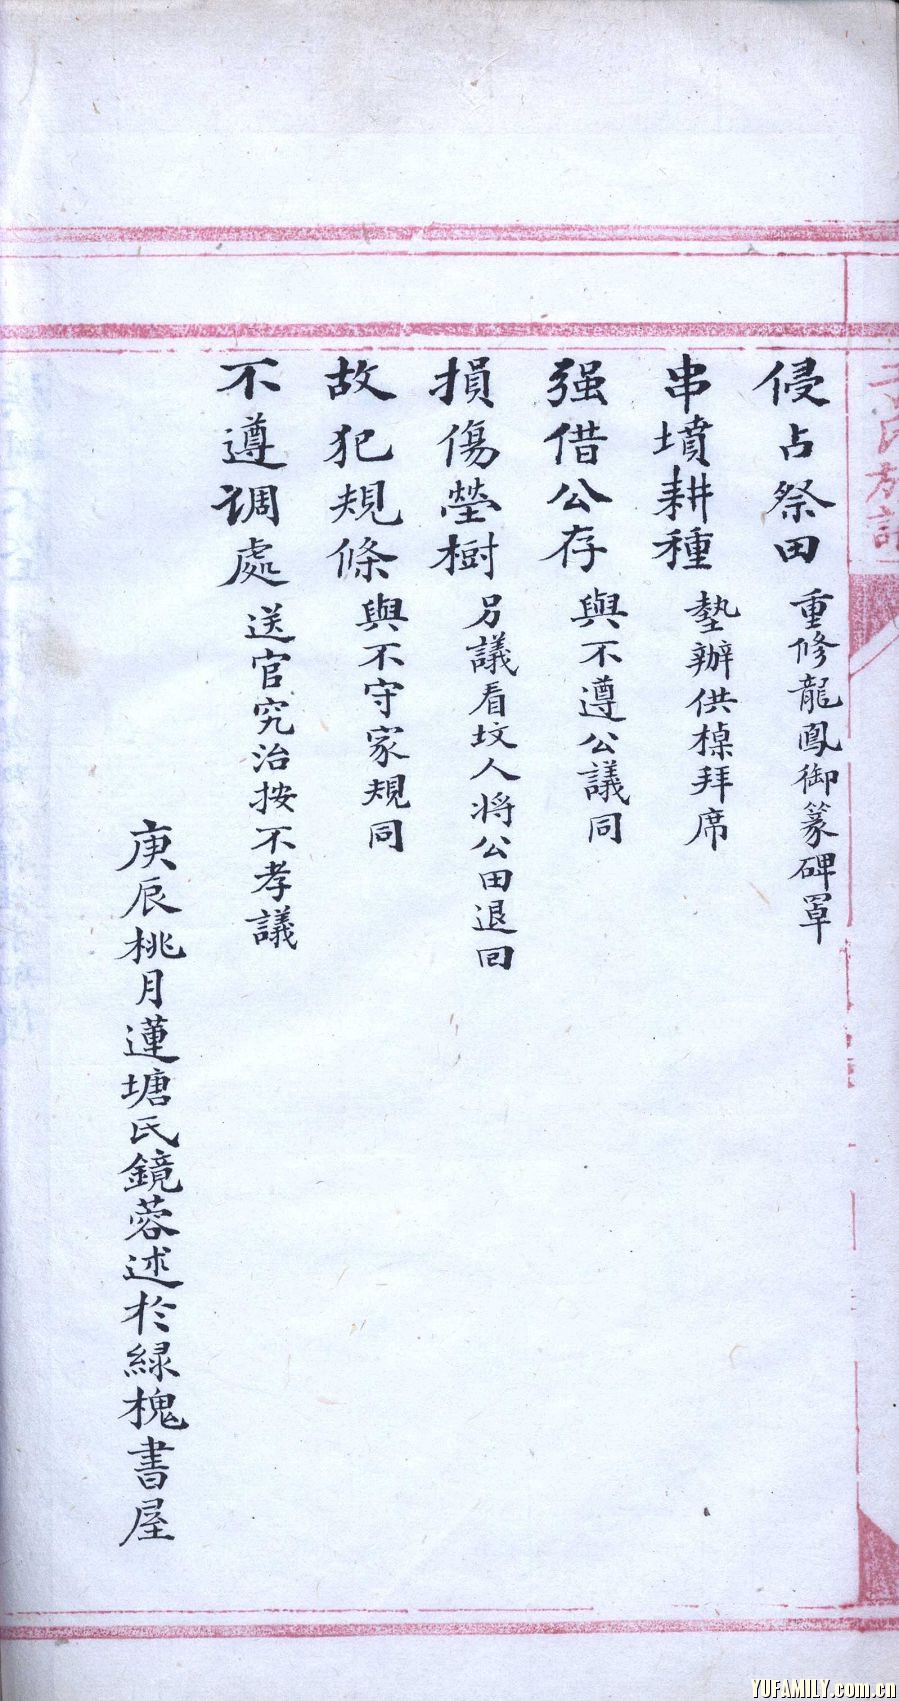 侵占祭田 重修龍鳳御篆碑罩
串墳耕種 墊辦供棹拜席
强借公存 與不遵公議同
損傷塋樹 另議看坟人将公田退回
故犯規條 與不守家規同
不遵调處 送官究治按不孝議
庚辰桃月蓮塘氏鏡蓉述於緑槐書屋
YUFAMILY.com.cn